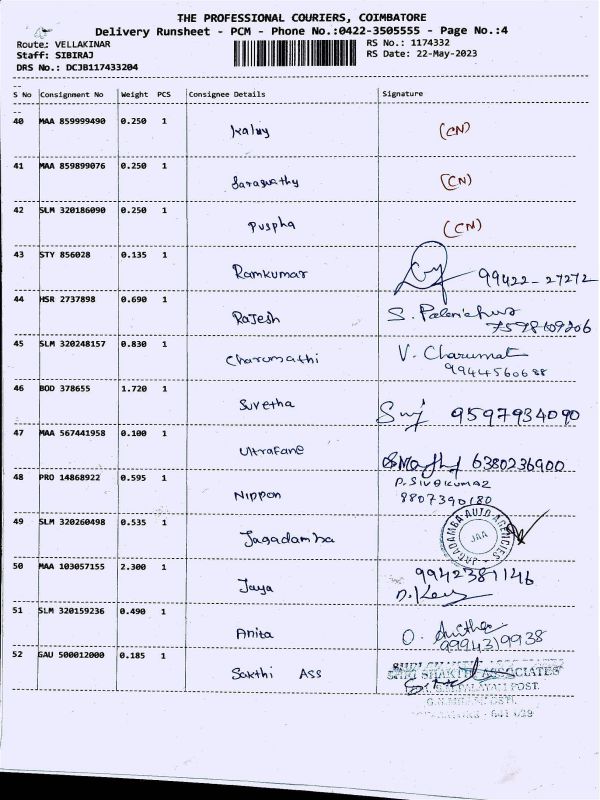 THE PROFESSIONAL COURIERS, COIMBATORE
Delivery Runsheet - PCM - Phone No.:0422-3505555 - Page No.:4
Route: VELLAKINAR RS No.: 1174332
Staff: SIBIRAJ RS Date: 22-May-2023
DRS No.: DCJB117433204
S No Consignment No Weight PCS Consignee Details Signature
40 MAA 859999490 0.250 1 Kalay (CN)
41 MAA 859899076 0.250 1 Saraswathy (CN)
42 SLM 320186090 0.250 1 Puspha (CN)
43 STY 856028 0.135 1 Ramkumar 99422-27272
44 HSR 2737898 0.690 1 Rajesh S.
7598109206
45 SLM 320248157 0.830 1 Charumathi V. Charumat
9944560688
46 BOD 378655 1.720 1 Suvetha 9597934090
47 MAA 567441958 0.100 1 Ultrafane 6380236900
48 PRO 14868922 0.595 1 Nippon P.SIVAKUMAR
8807390180
49 SLM 320260498 0.535 1 Jagadamba JAGADAMBA AUTO AGENCIES JAA
50 MAA 103057155 2.300 1 Jaya 9942381146
51 SLM 320159236 0.490 1 Anita O. Anitha
9994319938
52 GAU 500012000 0.185 1 Sakthi Ass
SHRI SHAKTHI ASSOCIATES
POST.